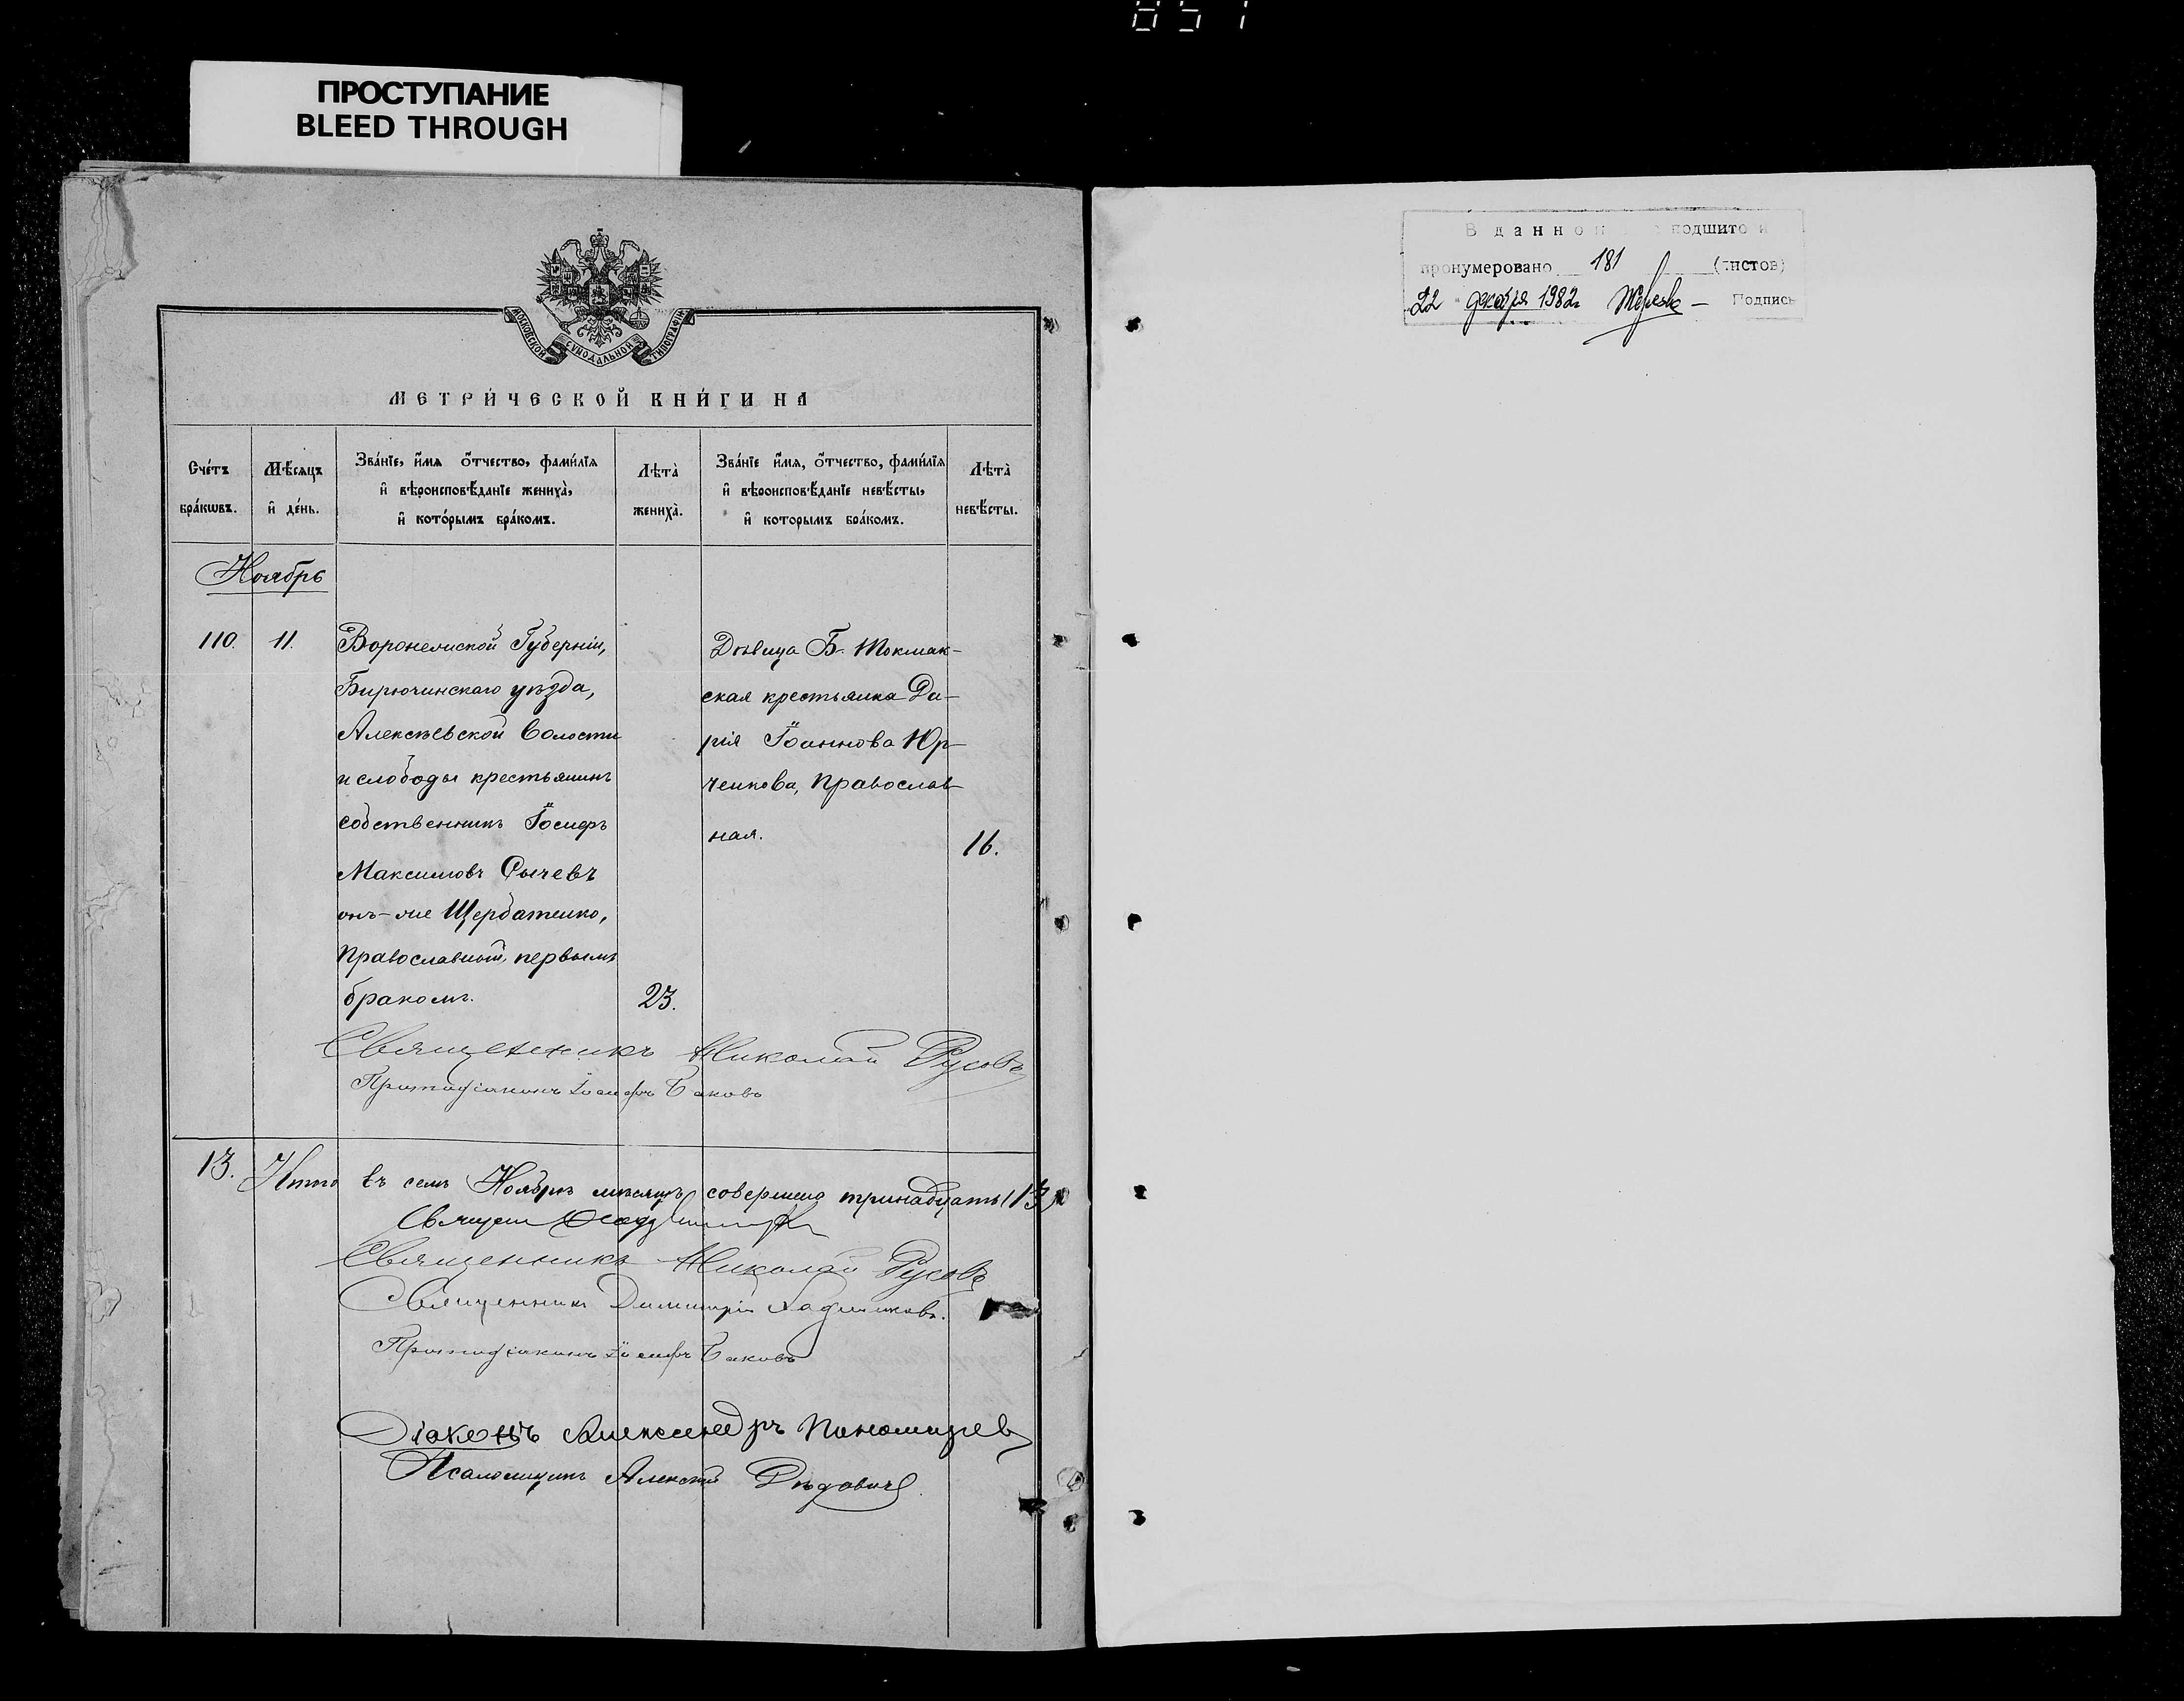 851
ПРОСТУПАНИЕ
BLEED THROUGH
МОСКОВСКОЙ СѴНОДАЛЬНОЙ ТИПОГРАФІИ
МЕТРИ́ЧЕСКОЙ КНИ́ГИ НА
Сче́тъ бра́кѡвъ.
Мѣ́сѧцъ и҆ де́нь.
Зва́нїе, и҆́мѧ ѻ҆́тчество, фами́лїѧ
и҆ вѣроисповѣ́данїе жениха̀,
и҆ кото́рымъ бра́комъ.
Лѣта̀ жениха̀.
Зва́нїе и҆́мѧ, ѻ҆́тчество, фами́лїѧ
и҆ вѣроисповѣ́данїе невѣ́сты,
и҆ которымъ бра́комъ.
Лѣта̀ невѣ́сты.
Ноябрь
110. 11.
Воронежской Губерніи,
Бирючинскаго уѣзда,
Алексѣевской волости
и слободы крестьянинъ
собственникъ Іосифъ
Максимовъ Сычевъ
онъ-же Щербатенко,
Православный, первымъ
бракомъ.
23.
Дѣвица Б. Токмак-
ская крестьянка Да-
рія Іоаннова Юр-
ченкова, Православ-
ная.
16.
Священникъ Николай Русовъ
Протодіаконъ Іосифъ Баковъ
13. Итого въ семъ Ноябрѣ мѣсяцѣ совершено тринадцать (13)
Священ
Священникъ Николай Русовъ
Священникъ Димитрій
Протодіаконъ Іосифъ Баковъ
Діаконъ Александръ Пономарев
Псаломщикъ Алексѣй Дѣдовичъ
В данно подшито и
пронумеровано 181 (листов)
22 декабря 1982г. Подпись